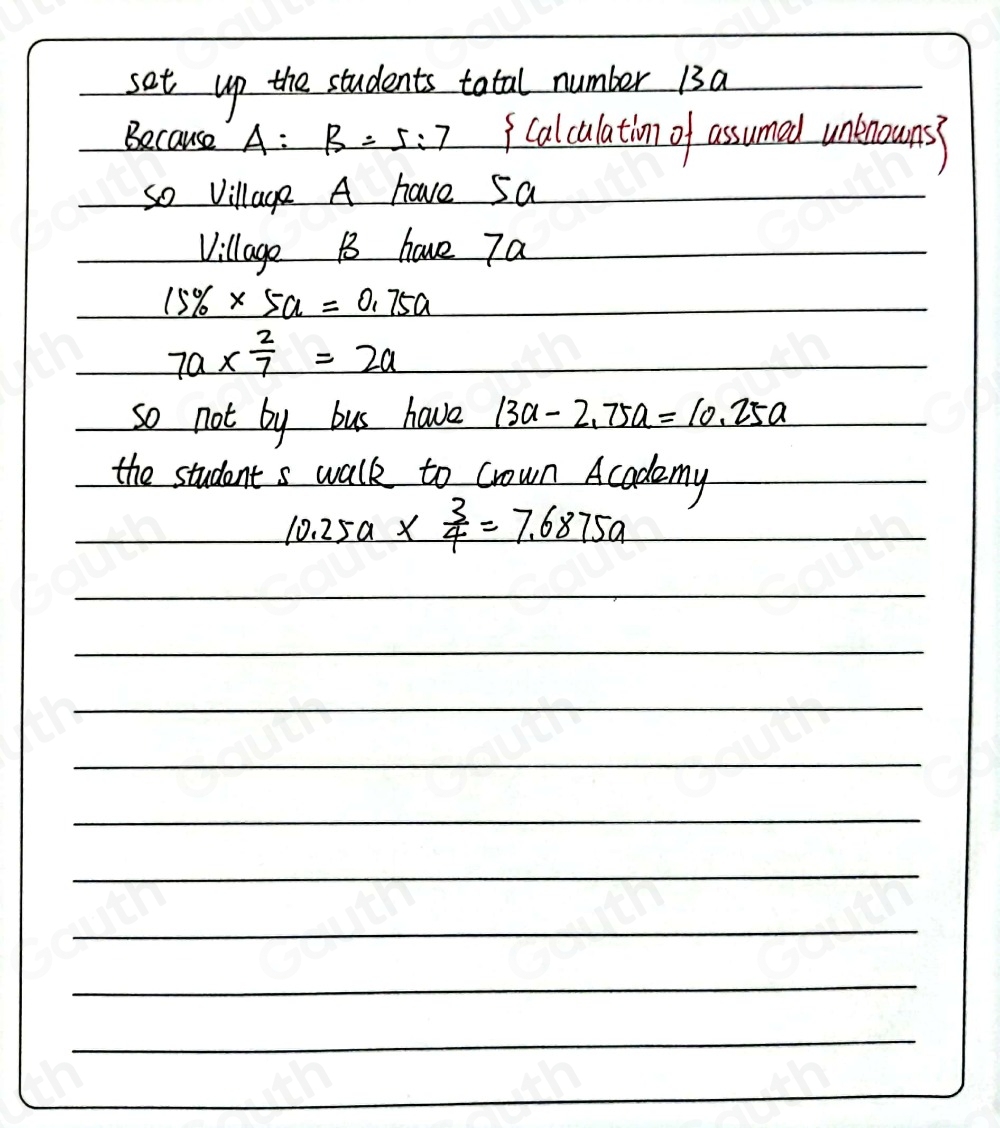 set up the students total number 13a
Because A: B = 5:7 {Calculation of assumed unknowns}
so Village A have 5a
Village B have 7a
15% × 5a = 0.75a
7a × 2/7 = 2a
so not by bus have 13a - 2.75a = 10.25a
the student s walk to Crown Academy
10.25a × 3/4 = 7.6875a